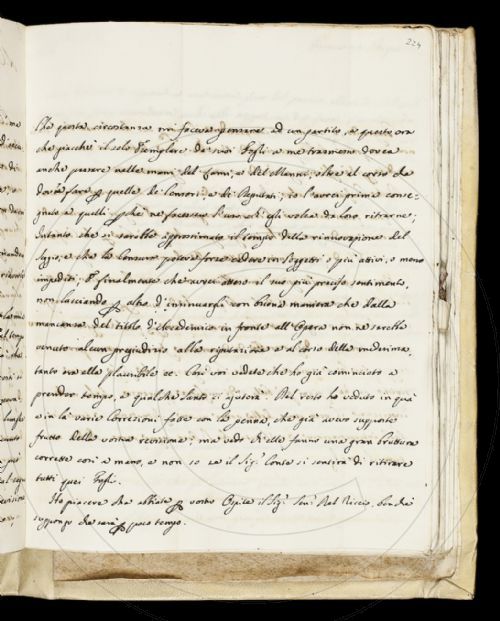 224
Che questa circostanza mi faceva pensare ad un partito, e questo era
che giacchè il solo Esemplare de suoi Fogli a me trasmesso dovea
anche passare nelle mani del Lami, e del Manni, oltre il corso che
dovea fare p quelle de Censori, e di Deputati; io l'avrei prima conse-
gnato a quelli p che ne facessero l'uso ch'egli volea da loro ritrarne;
Intanto che si sarebbe approssimato il tempo della rinnovazione del
Seggio, e che la Censura poteva forse cadere in Soggetti o più attivi, o meno
impediti; E finalmente che avrei atteso il suo più preciso sentimento,
non lasciando p altro d'insinuargli con buona maniera che dalla
mancanza del titolo d'Accademico in fronte all'Opera non ne sarebbe
venuto alcun pregiudizio alla riputazione e al corso della medesima,
tanto era ella plausibile ec. Così voi vedete che ho già cominciato a
prender tempo, e qualche Santo ci ajuterà. Nel resto ho veduto in qua
e in la varie Correzioni fatte con la penna, che già avevo supposto
frutto della vostra revisione; ma vedo ch'elle fanno una gran bruttura
corrette così a mano, e non so se il Sig. Conte si sentirà di ristirare
tutti quei Fogli.
Ho piacere che abbiate p vostro Ospite il Sig. Del Riccio, benchè
suppongo che sarà p poco tempo.